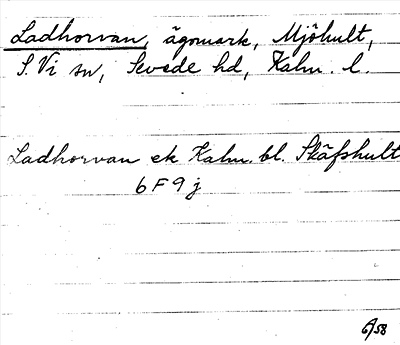 Ladhorvan, ägomark, Mjöhult,
S. Vi sn, Sevede hd, Kalm. l.
Ladhorvan ek Kalm. bl. Släfshult
6 F 9 j
6/58